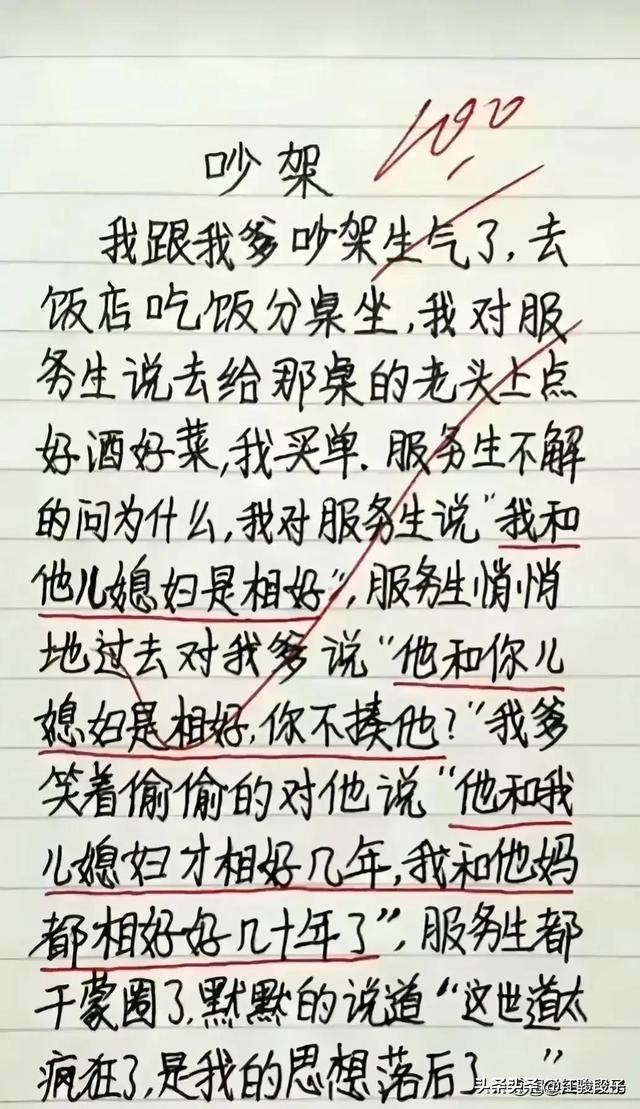 100
吵架
我跟我爹吵架生气了,去
饭店吃饭分桌坐,我对服
务生说去给那桌的老头上点
好酒好菜,我买单.服务生不解
的问为什么,我对服务生说"我和
他儿媳妇是相好",服务生悄悄
地过去对我爹说"他和你儿
媳妇是相好,你不揍他?"我爹
笑着偷偷的对他说"他和我
儿媳妇才相好几年,我和他妈
都相好好几十年了",服务生都
干蒙圈了,默默的说道"这世道太
疯狂了,是我的思想落后了 "
头条 @红骏段子